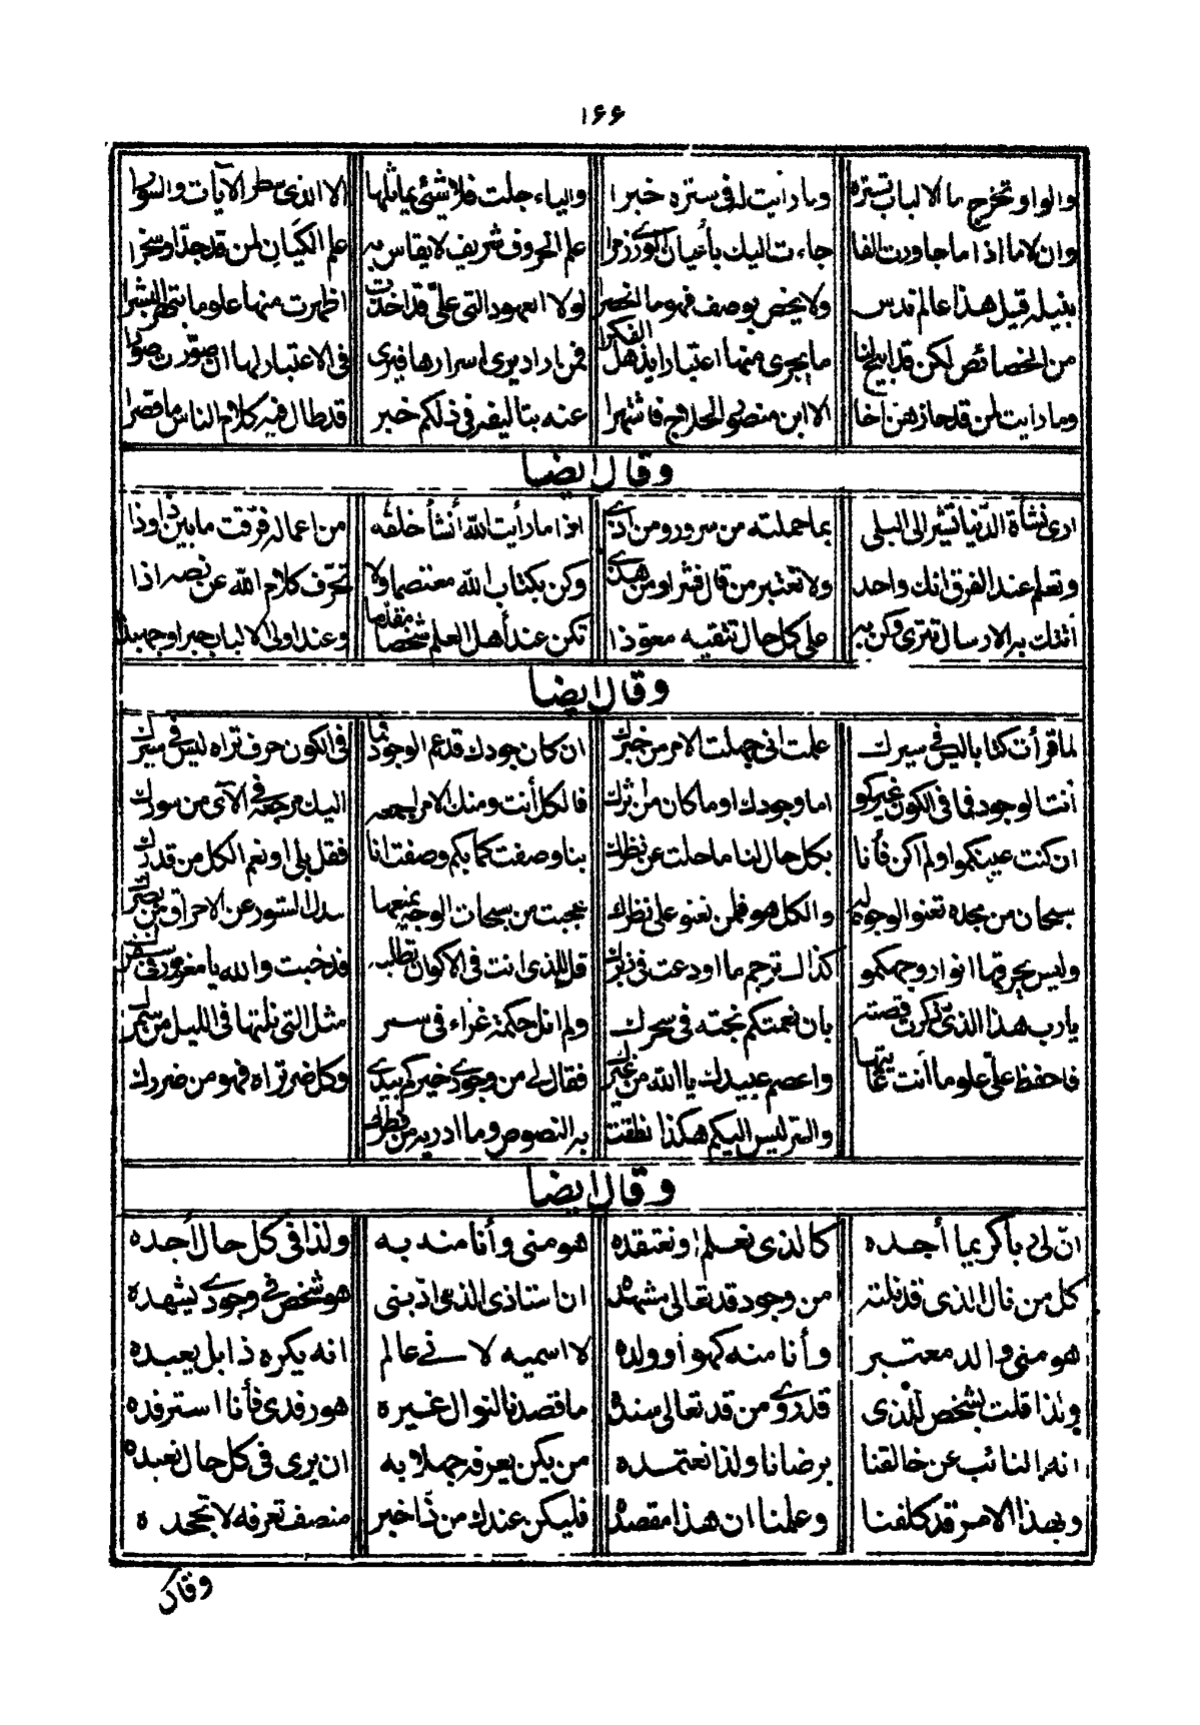 ١٦٦
والواو تخرج ما الالباب تستره وما رأيت له في ستره خبرا والياء جلت فلا شئ يماثلها الا الذي سطر الآيات والسورا
وان لاما اذا ما جاورت الفا جاءت اليك بأعيان الورى زمرا علم الحروف شريف لا يقاس به علم الكيان لمن قد جدّ او سخرا
بنيله قيل هذا عالم ندس ولا يخص بوصف فهو ما انحصرا لولا العهود التي عليّ قد اخذت اظهرت منها علوما تبهر البشرا
من الخصائص لكن قد ابيح لنا ما يجرى منها اعتبارا يذهل الفكرا فمن اراد يرى اسرارها فيرى في الاعتبار لها ان صوّرت صورا
وما رأيت لمن قد حاز هنّ اخا الا ابن منصور الحلاج فاشتهرا عنه بتاليفه في ذلكم خبر قد طال فيه كلام الناس ما قصرا
وقال ايضا
ارى نشأة الدّنيا تشير الى البلى بما حملته من سرور ومن اذى اذا ما رأيت الله أنشأ خلقه من اعماله فرّقت ما بين ذا وذا
وتعلم عند الفرق انك واحد ولا تعتبر من قال فشرا ومن هذى وكن بكتاب الله معتصما ولا تحرّف كلام الله عن نصه اذا
أتتك به الارسال تترى وكن به على كل حال تتقيه معوّذا تكن عند أهل العلم شخصا مقدّما وعند اولى الالباب حبرا وجهبذا
وقال ايضا
لما قرأت كتابا ليس في سيرك علمت انى جهلت الامر من خبرك ان كان جودك قد عم الوجود فما في الكون حرف تراه ليس في سيرك
أنت الوجود فما في الكون غيركمو اما وجودك او ما كان من أثرك فالكل أنت ومنك الامر اجمعه اليك مرجعه في الآي من سورك
ان كنت عينكمو اولم اكن فأنا بكل حال لنا ما حلت عن نظرك بنا وصفت كما بكم وصفت انا فقل بلى او نعم الكل من قدرك
سبحان من مجده تعنو الوجوه له والكل هو فلمن تعنو على نظرك عجبت من سبحات الوجه يمنعها سدل الستور عن الاحراق من بصرك
وليس يحرقها انوار وجهكمو كذاك ترجم ما اودعت في زبرك قل للذي انت في الاكوان تطلبه قد خبت والله يا مغرور في سفرك
يا رب هذا الذي ذكرت قصته بان نعمتكم نجته في سحرك ولم انل حكمة غراء في سمر مثل التي نلتها في الليل من سمرك
فاحفظ عليّ علوما أنت غايتها واعصم عبيدك يا الله من غيرك فقال لي من وجودي خيركم بيدي وكل ضر تراه فهو من ضررك
والشر ليس اليكم هكذا نطقت به النصوص وما ادريه من فطرك
وقال ايضا
انّ لي ربا كريما أجده كالذي نعلم او نعتقده هو مني وأنا منه به ولذا في كل حال أجده
كل من نال الذي قد نلته من وجود قد تعالى مشهده ان استاذي الذي ادّبنى هو شخص في وجودي يشهده
هو مني والد معتبر وأنا منه كهو أو ولده لا اسميه لانى عالم انه يكره ذا بل يعبده
ولذا قلت لشخص للذى قد روى من قد تعالى سنده ما قصدنا لنوال غيره هو رفدى فأنا استرفده
انه النائب عن خالقنا برضانا ولذا نعتمده من يكن يعرفه جهلا به ان يرى في كل حال نعبده
وبهذا الامر قد كلفنا وعلمنا ان هذا مقصده فليكن عندك من ذا خبر منصف تعرفه لا تجحده
وقال